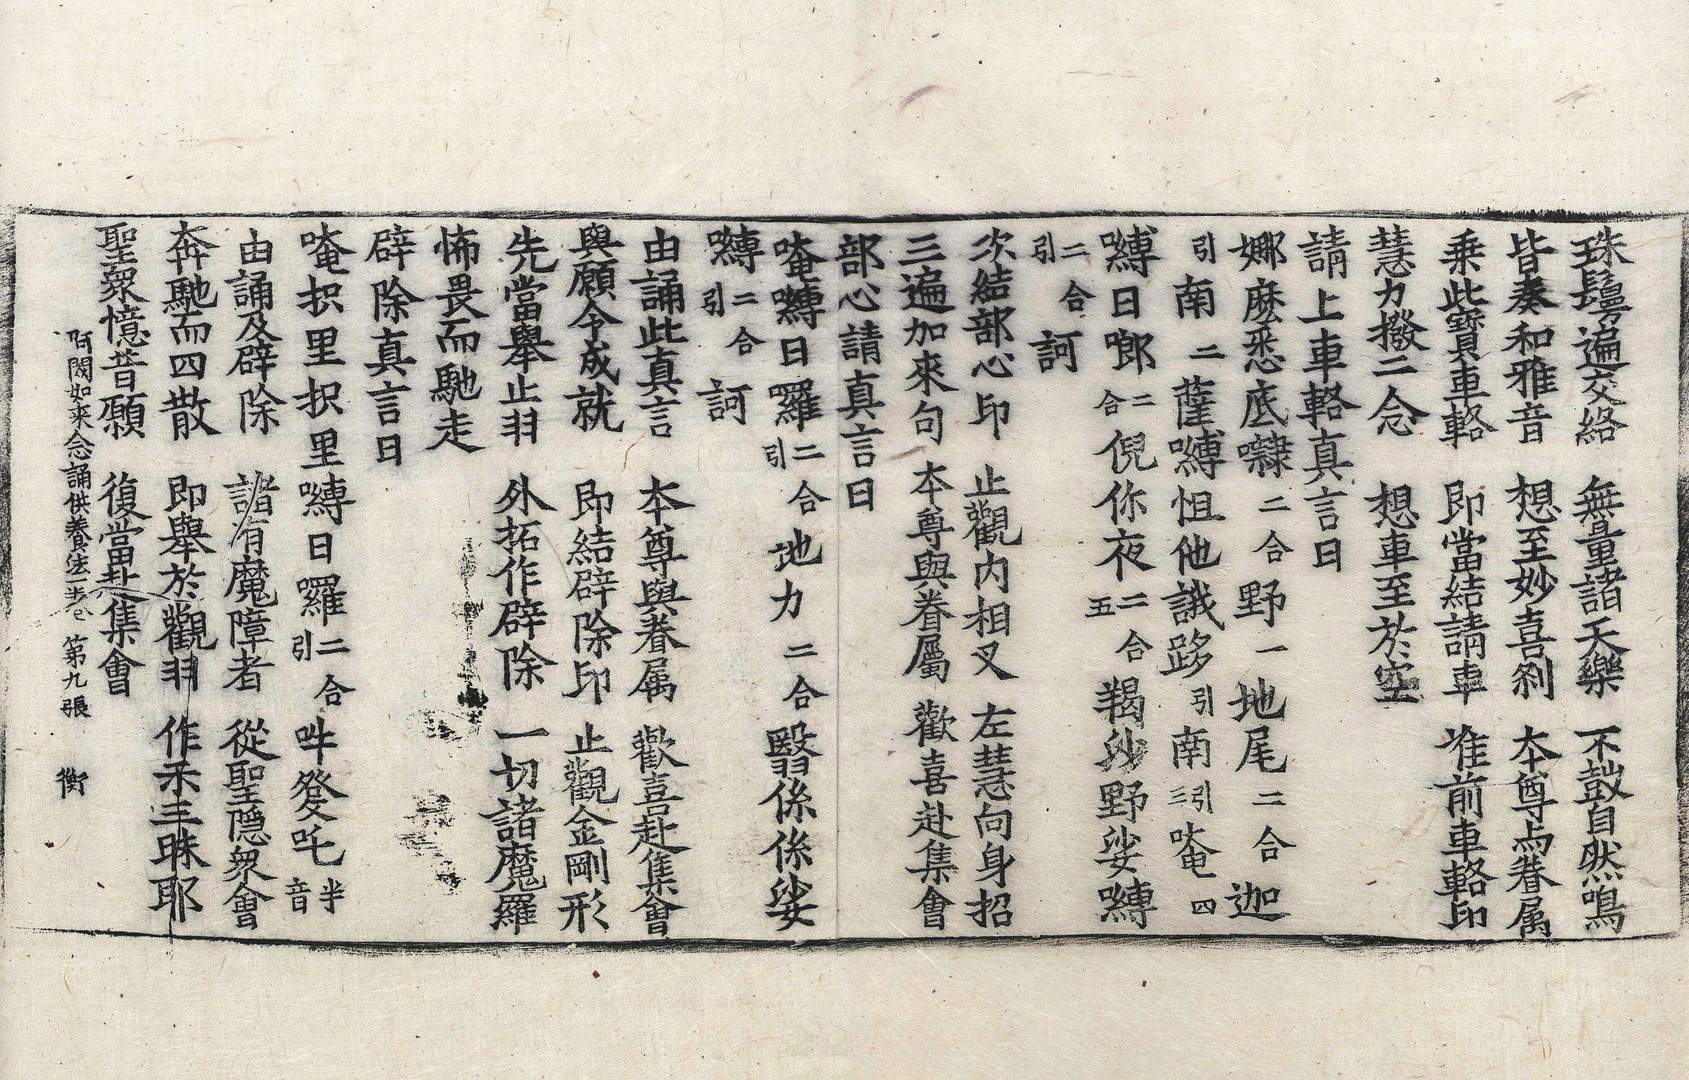 珠鬘遍交絡 無量諸天樂 不鼓自然鳴
皆奏和雅音 想至妙喜刹 本尊与眷属
乗此寶車輅 即當結請車 准前車輅印
慧力撥二念 想車至於空
請上車輅真言曰
娜麼悉底㘑二合野一地尾二合迦
引南二薩嚩怛他誐跢引南引三唵四
嚩日囕二合倪你夜二合五羯沙野娑嚩
二合引訶
次結部心印 止觀內相叉 左慧向身招
三遍加來句 本尊與眷屬 歡喜赴集會
部心請真言曰
唵嚩日囉二合引地力二合翳係係娑
嚩二合引訶
由誦此真言 本尊與眷属 歡喜赴集會
與願令成就 即結辟除印 止觀金剛形
先當舉止羽 外拓作辟除 一切諸魔羅
怖畏而馳走
辟除真言曰
唵枳里枳里嚩日囉二合引吽發吒半音
由誦及辟除 諸有魔障者 從聖隱衆會
奔馳而四散 即舉於觀羽 作示三昧耶
聖衆憶昔願 復當赴集會
阿閦如来念誦供養法一卷 第九張 衡